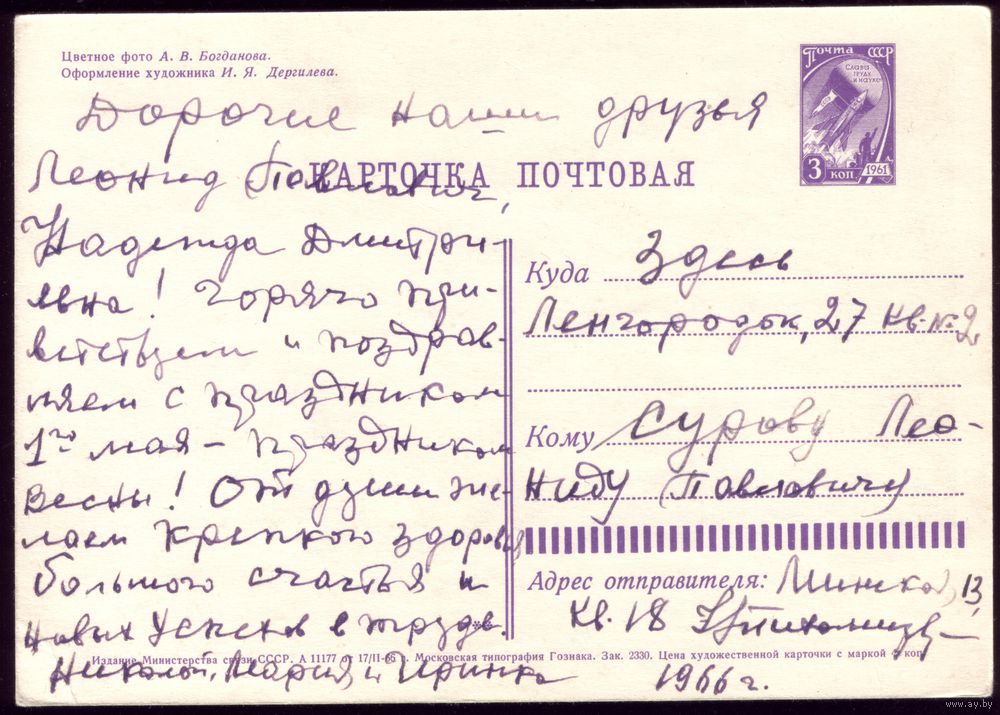 Цветное фото А. В. Богданова.
Оформление художника И. Я. Дергилева.
Почта СССР
Слава труду и науке
3 коп. 1961
КАРТОЧКА ПОЧТОВАЯ
Дорогие наши друзья
Леонид Павлович,
Надежда Дмитри-
евна! Горячо при-
ветствуем и поздрав-
ляем с праздником
1го мая – праздником
весны! От души же-
лаем крепкого здоровья
большого счастья и
новых успехов в труде.
Николай, Мария и Иринка
1966 г.
Куда Здесь
Ленгородок, 27 кв. № 2
Кому Сурову Лео-
ниду Павловичу
Адрес отправителя: 13,
кв. 18
Издание Министерства связи СССР. А 11177 от 17/II-66 г. Московская типография Гознака. Зак. 2330. Цена художественной карточки с маркой коп.
www.ay.by